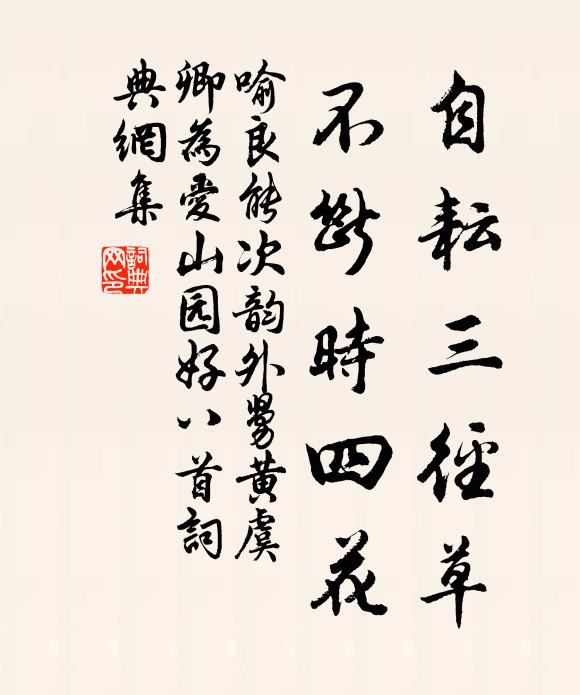 自耘三徑草
不斷時四花
喻良能次韵外舅黃虞
卿為愛山园好八首詞
典網集
詞典
网印